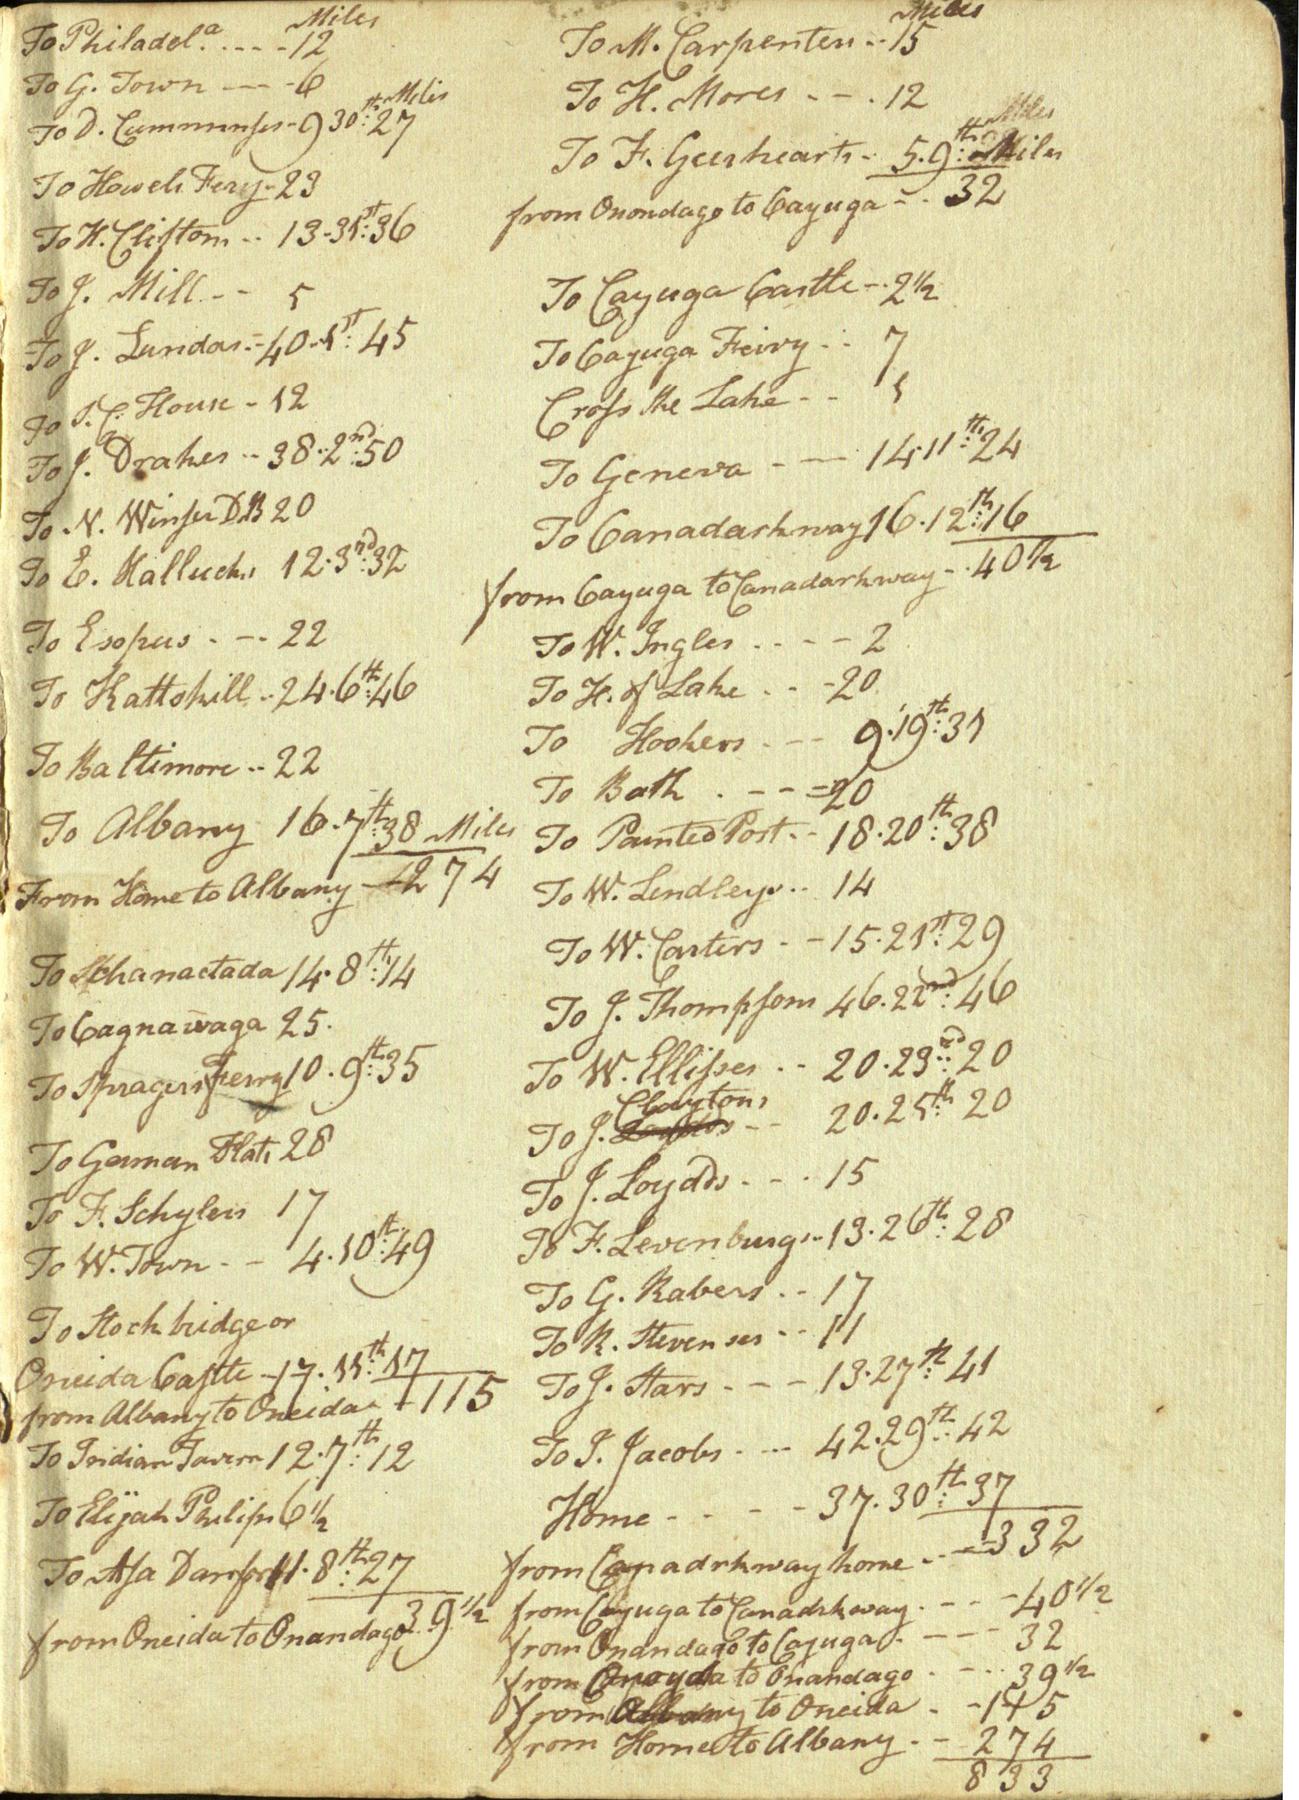 Miles
To Philadelª. - - - 12
To G. Town - - - 6
Miles
To D. Cummings - 9 30th: 27
To Howels Fery - 23
To H. Cliftom - - 13 - 31st: 36
To J. Mill - - 5
To J. Lundas - - 40 - 1st: 45
To House - 12
To J. Drakes - - 38 - 2nd: 50
To N. Winfer 20
To E. Kallucks 12 - 3rd: 32
To Esopus - - - 22
To Kattskill - - 24 - 6th: 46
To Baltimore - - 22
To Albany 16 - 7th: 38 Miles
From Home to Albany - 274
To Schanactada 14 - 8th: 14
To Cagnawaga 25.
To Spragers Ferry 10 - 9th: 35
To German Flats 28
To F. Schylers 17
To W. Town - - 4 - 10th: 49
To Stockbridge or
Oneida Castle - 17 - 11th 17
from Albany to Oneida - 115
To Indian Tavern 12 - 7th: 12
To Elijah Philips 6 1/2
To Asa Danforth - 8th: 27
39 1/2
from Oneida to Onandago
Miles
To M. Carpenters - - 15
To H. Mores - - - 12
Miles
To F. Geerhearts - 5 - 9th: Miles
from Onondago to Cayuga - - 32
To Cayuga Castle - - 2 1/2
To Cayuga Feivy - - 7
Cross the Lake - - 1
To Geneva - - - 14 - 11th: 24
To Canadarkway 16 - 12th: 16
from Cayuga to Canadarkway - - 40 1/2
To W. Ingles - - - - 2
To H. of Lake - - - 20
To Hookers - - - 9 - 19th: 31
To Bath - - - = 20
To Painted Post - - 18 - 20th: 38
To W. Lindleys - - 14
To W. Carters - - 15 - 21st: 29
To J. Thompsons 46 - 22nd: 46
To W. Ellisses - - 20 - 23rd: 20
Claytons
To J. - - 20 - 25th 20
To J. Loydds - - - 15
To F. Levenburgs - - 13 - 26th: 28
To G. Rabers - - 17
To R. Stevenses - - 11
To J. Stars - - - 13 - 27th: 41
To J. Jacobs - - - 42 - 29th: 42
Home - - - - 37 - 30th: 37
from Canadrkway home - - - 332
from Cayuga to Canadrkway - - - 40 1/2
from Onandago to Cayuga - - - - 32
from to Onandago - - - 39 1/2
from Albany to Oneida - - 115
from Home to Albany - - 274
833